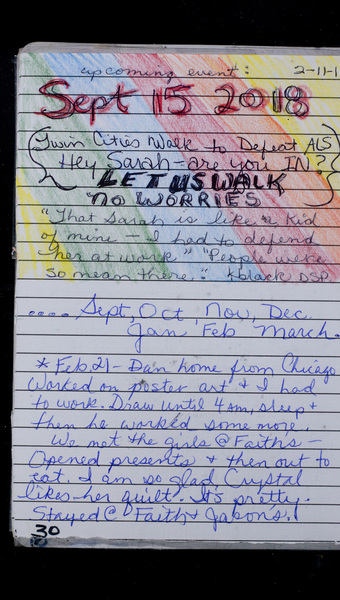 upcoming event: 2-11-1
Sept 15 2018
Twin Cities Walk to Defeat ALS
Hey Sarah - are you IN?
LET US WALK
NO WORRIES
"That Sarah is like a kid
of mine - I had to defend
her at work" "People were
so mean there." Kblack DSP
.... Sept, Oct, Nov, Dec
Jan Feb March.
* Feb. 21 - Dan home from Chicago
Worked on poster art & I had
to work. Draw until 4 AM, sleep &
then he worked some more.
We met the girls @ Faiths -
Opened presents & then out to
eat. I am so glad Crystal
likes her quilt. It's pretty.
Stayed @ Faith & Jasons!
30